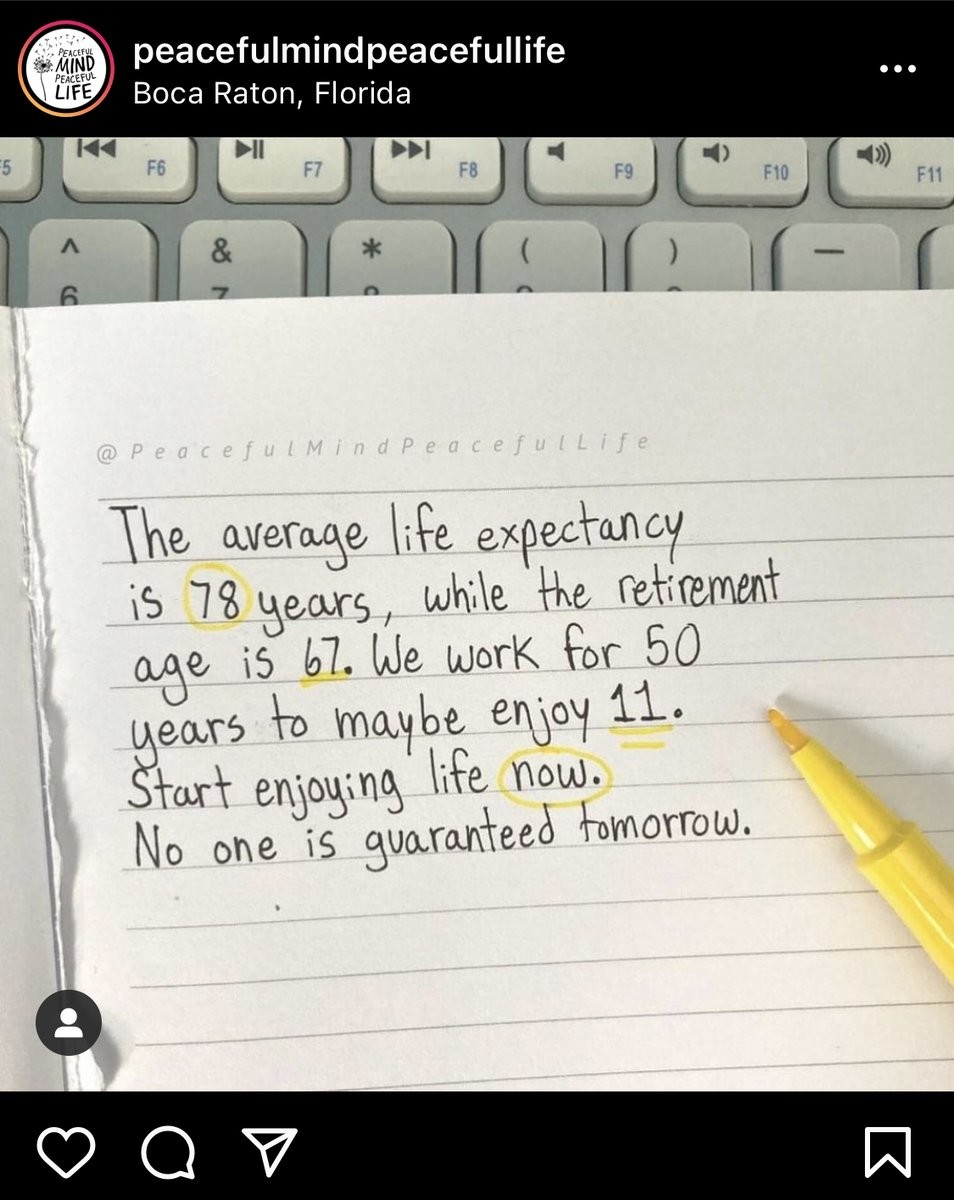 PEACEFUL
MIND
PEACEFUL
LIFE
peacefulmindpeacefullife
Boca Raton, Florida
F6
F7
F8
F9
F10
F11
^
&
*
(
)
—
6
@PeacefulMindPeacefulLife
The average life expectancy
is 78 years, while the retirement
age is 67. We work for 50
years to maybe enjoy 11.
Start enjoying life now.
No one is guaranteed tomorrow.